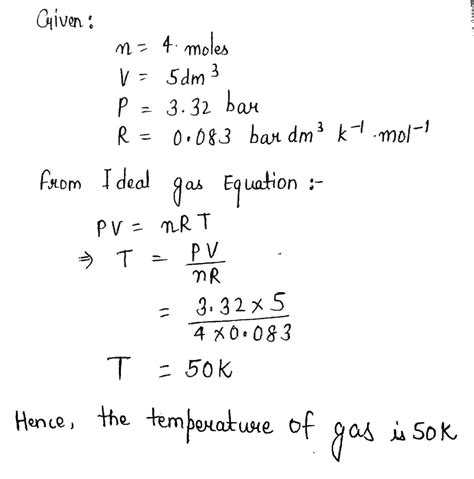 Given:
n = 4. moles
V = 5dm³
P = 3.32 bar
R = 0.083 bar dm³ k⁻¹.mol⁻¹
From Ideal gas Equation :-
PV = nRT
⇒ T = PV/nR
= 3.32 × 5/4 × 0.083
T = 50K
Hence, the temperature of gas is 50K